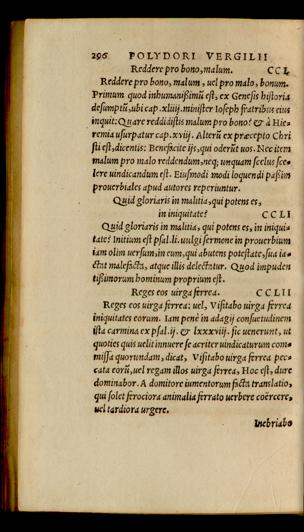 296 POLYDORI VERGILII
Reddere pro bono, malum. CCL
Reddere pro bono, malum, uel pro malo, bonum.
Primum quod inhumanißimũ est, ex Genesis historia
desumptũ, ubi cap. xliiij. minister Ioseph fratribus eius
inquit: Quare reddidistis malum pro bono? & à Hie-
remia usurpatur cap. xviij. Alterũ ex præcepto Chri
sti est, dicentis: Benefacite ijs, qui oderũt uos. Nec item
malum pro malo reddendum, neq; unquam scelus sce-
lere uindicandum est. Eiusmodi modi loquendi paßim
prouerbiales apud autores reperiuntur.
Quid gloriaris in malitia, qui potens es,
in iniquitate? CCLI
Quid gloriaris in malitia, qui potens es, in iniqui-
tate? Initium est psal. li. uulgi sermone in prouerbium
iam olim uersum, in eum, qui abutens potestate, sua ia-
ctat malefacta, atque illis delectatur. Quod impuden
tißimorum hominum proprium est.
Reges eos uirga ferrea. CCLII
Reges eos uirga ferrea: uel, Visitabo uirga ferrea
iniquitates eorum. Iam penè in adagij consuetudinem
ista carmina ex psal. ij. & lxxxviij. sic uenerunt, ut
quoties quis uelit innuere se acriter uindicaturum com-
missa quorundam, dicat, Visitabo uirga ferrea pec-
cata eorũ, uel regam illos uirga ferrea, Hoc est, dure
dominabor. A domitore iumentorum facta translatio,
qui solet ferociora animalia ferrato uerbere coërcere,
uel tardiora urgere.
Inebriabo